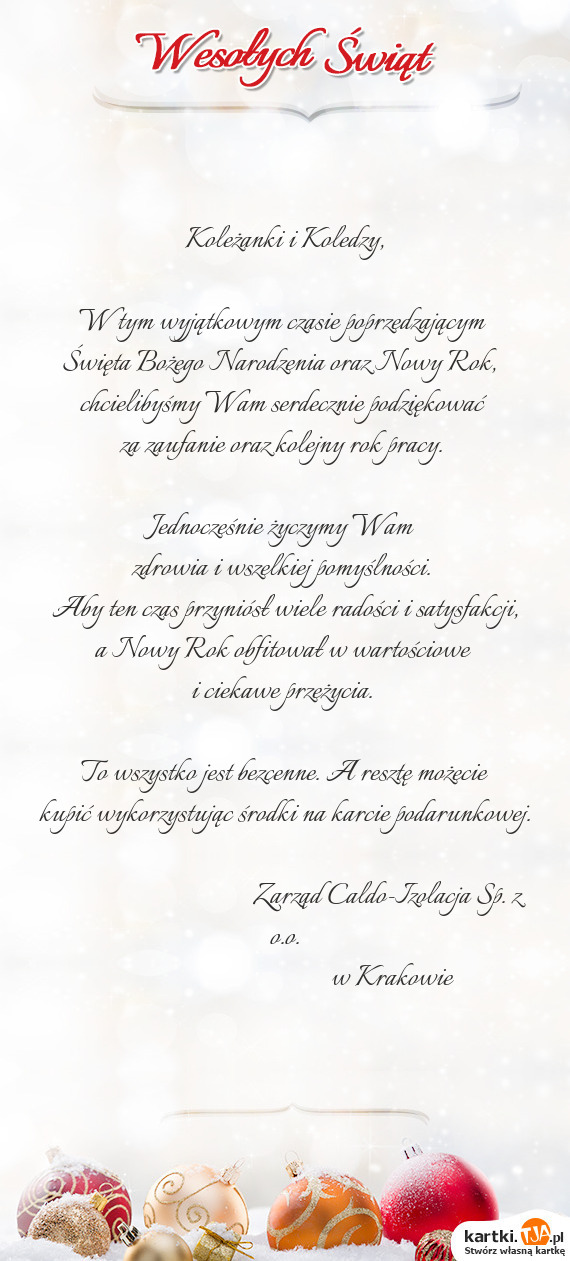 Wesołych Świąt
Koleżanki i Koledzy,
W tym wyjątkowym czasie poprzedzającym
Święta Bożego Narodzenia oraz Nowy Rok,
chcielibyśmy Wam serdecznie podziękować
za zaufanie oraz kolejny rok pracy.
Jednocześnie życzymy Wam
zdrowia i wszelkiej pomyślności.
Aby ten czas przyniósł wiele radości i satysfakcji,
a Nowy Rok obfitował w wartościowe
i ciekawe przeżycia.
To wszystko jest bezcenne. A resztę możecie
kupić wykorzystując środki na karcie podarunkowej.
Zarząd Caldo-Izolacja Sp. z
o.o.
w Krakowie
kartki.TJA.pl
Stwórz własną kartkę